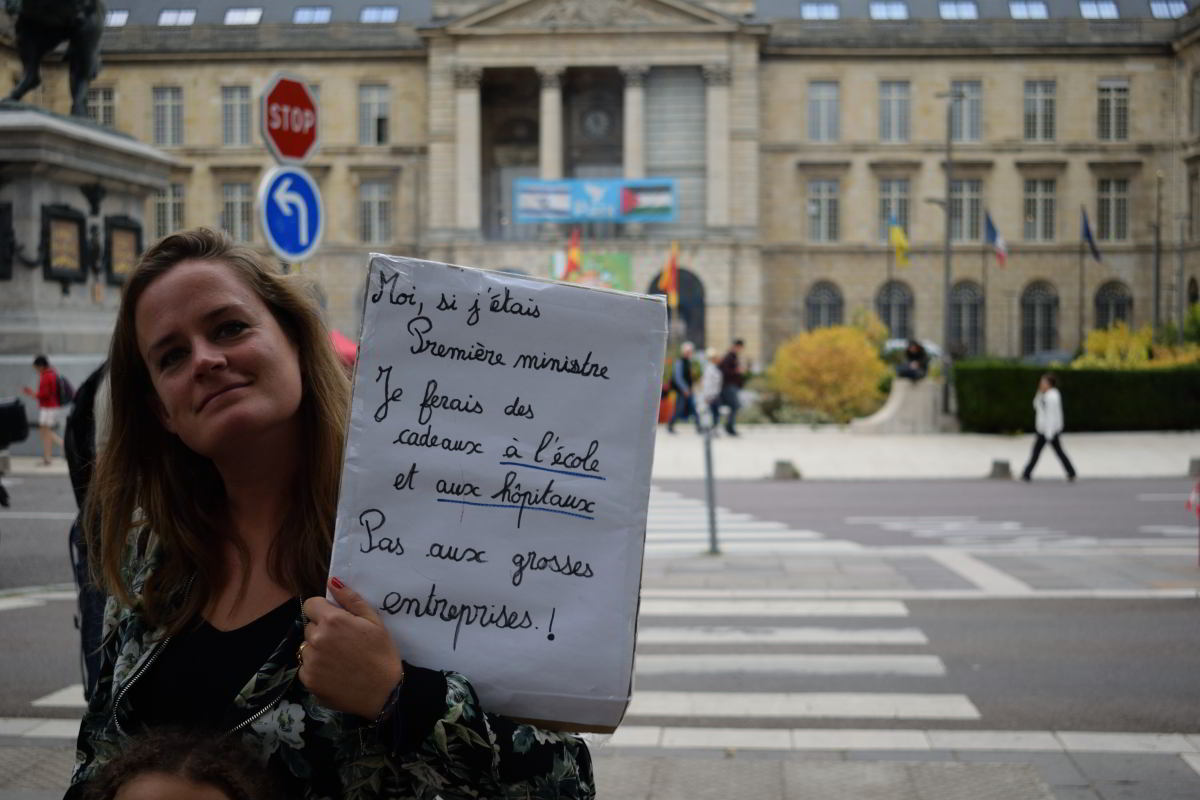 STOP
Paix
Moi, si j'étais
Première ministre
Je ferais des
cadeaux à l'école
et aux hôpitaux
Pas aux grosses
entreprises.!